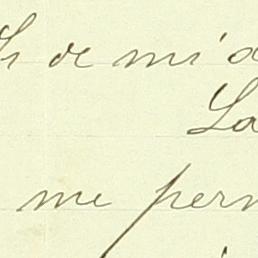 de mi a
La
me perm